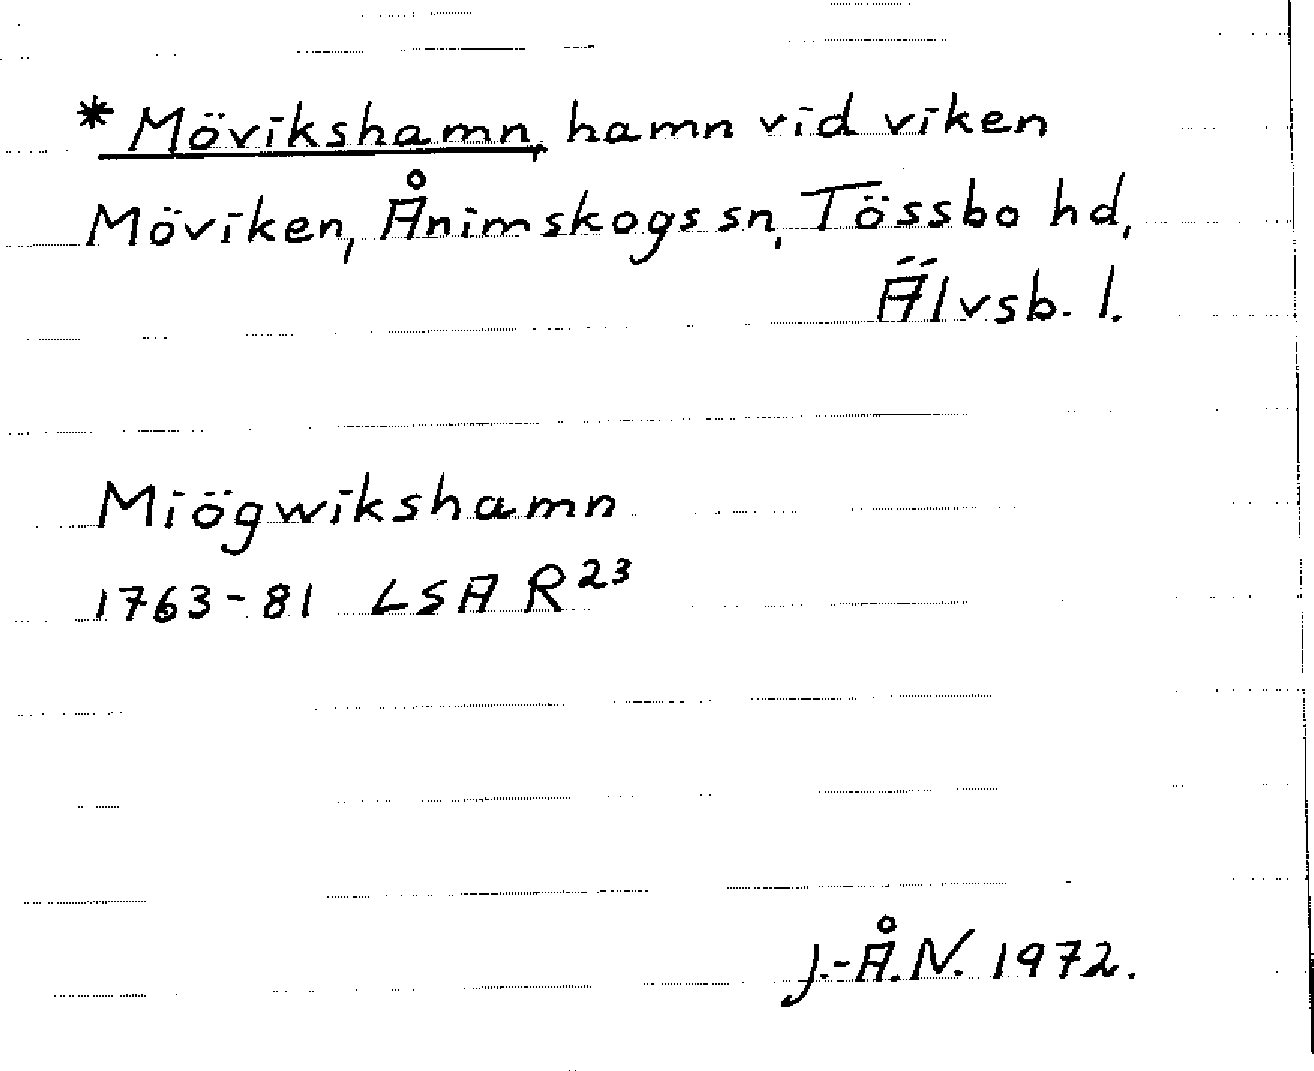 * Mövikshamn, hamn vid viken
Möviken, Ånimskogs sn, Tössbo hd,
Älvsb. l.
Miögwikshamn
1763-81 LSA R²³
J.-Å.N. 1972.